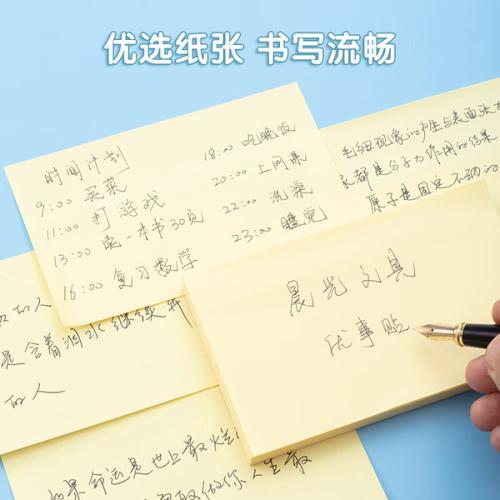 优选纸张 书写流畅
时间计划
9:00 买菜
11:00 打游戏
13:00 读一本书30页
16:00 复习数学
18:00 吃晚饭
20:00 上网课
22:00 洗澡
23:00 睡觉
毛细现象的产生与表面张
都是分子力作用的结果
原子是固定不动的
晨光文具
优事贴
的人
是含着泪水继续奔
的人
如果命运是世上最烂
你人生最